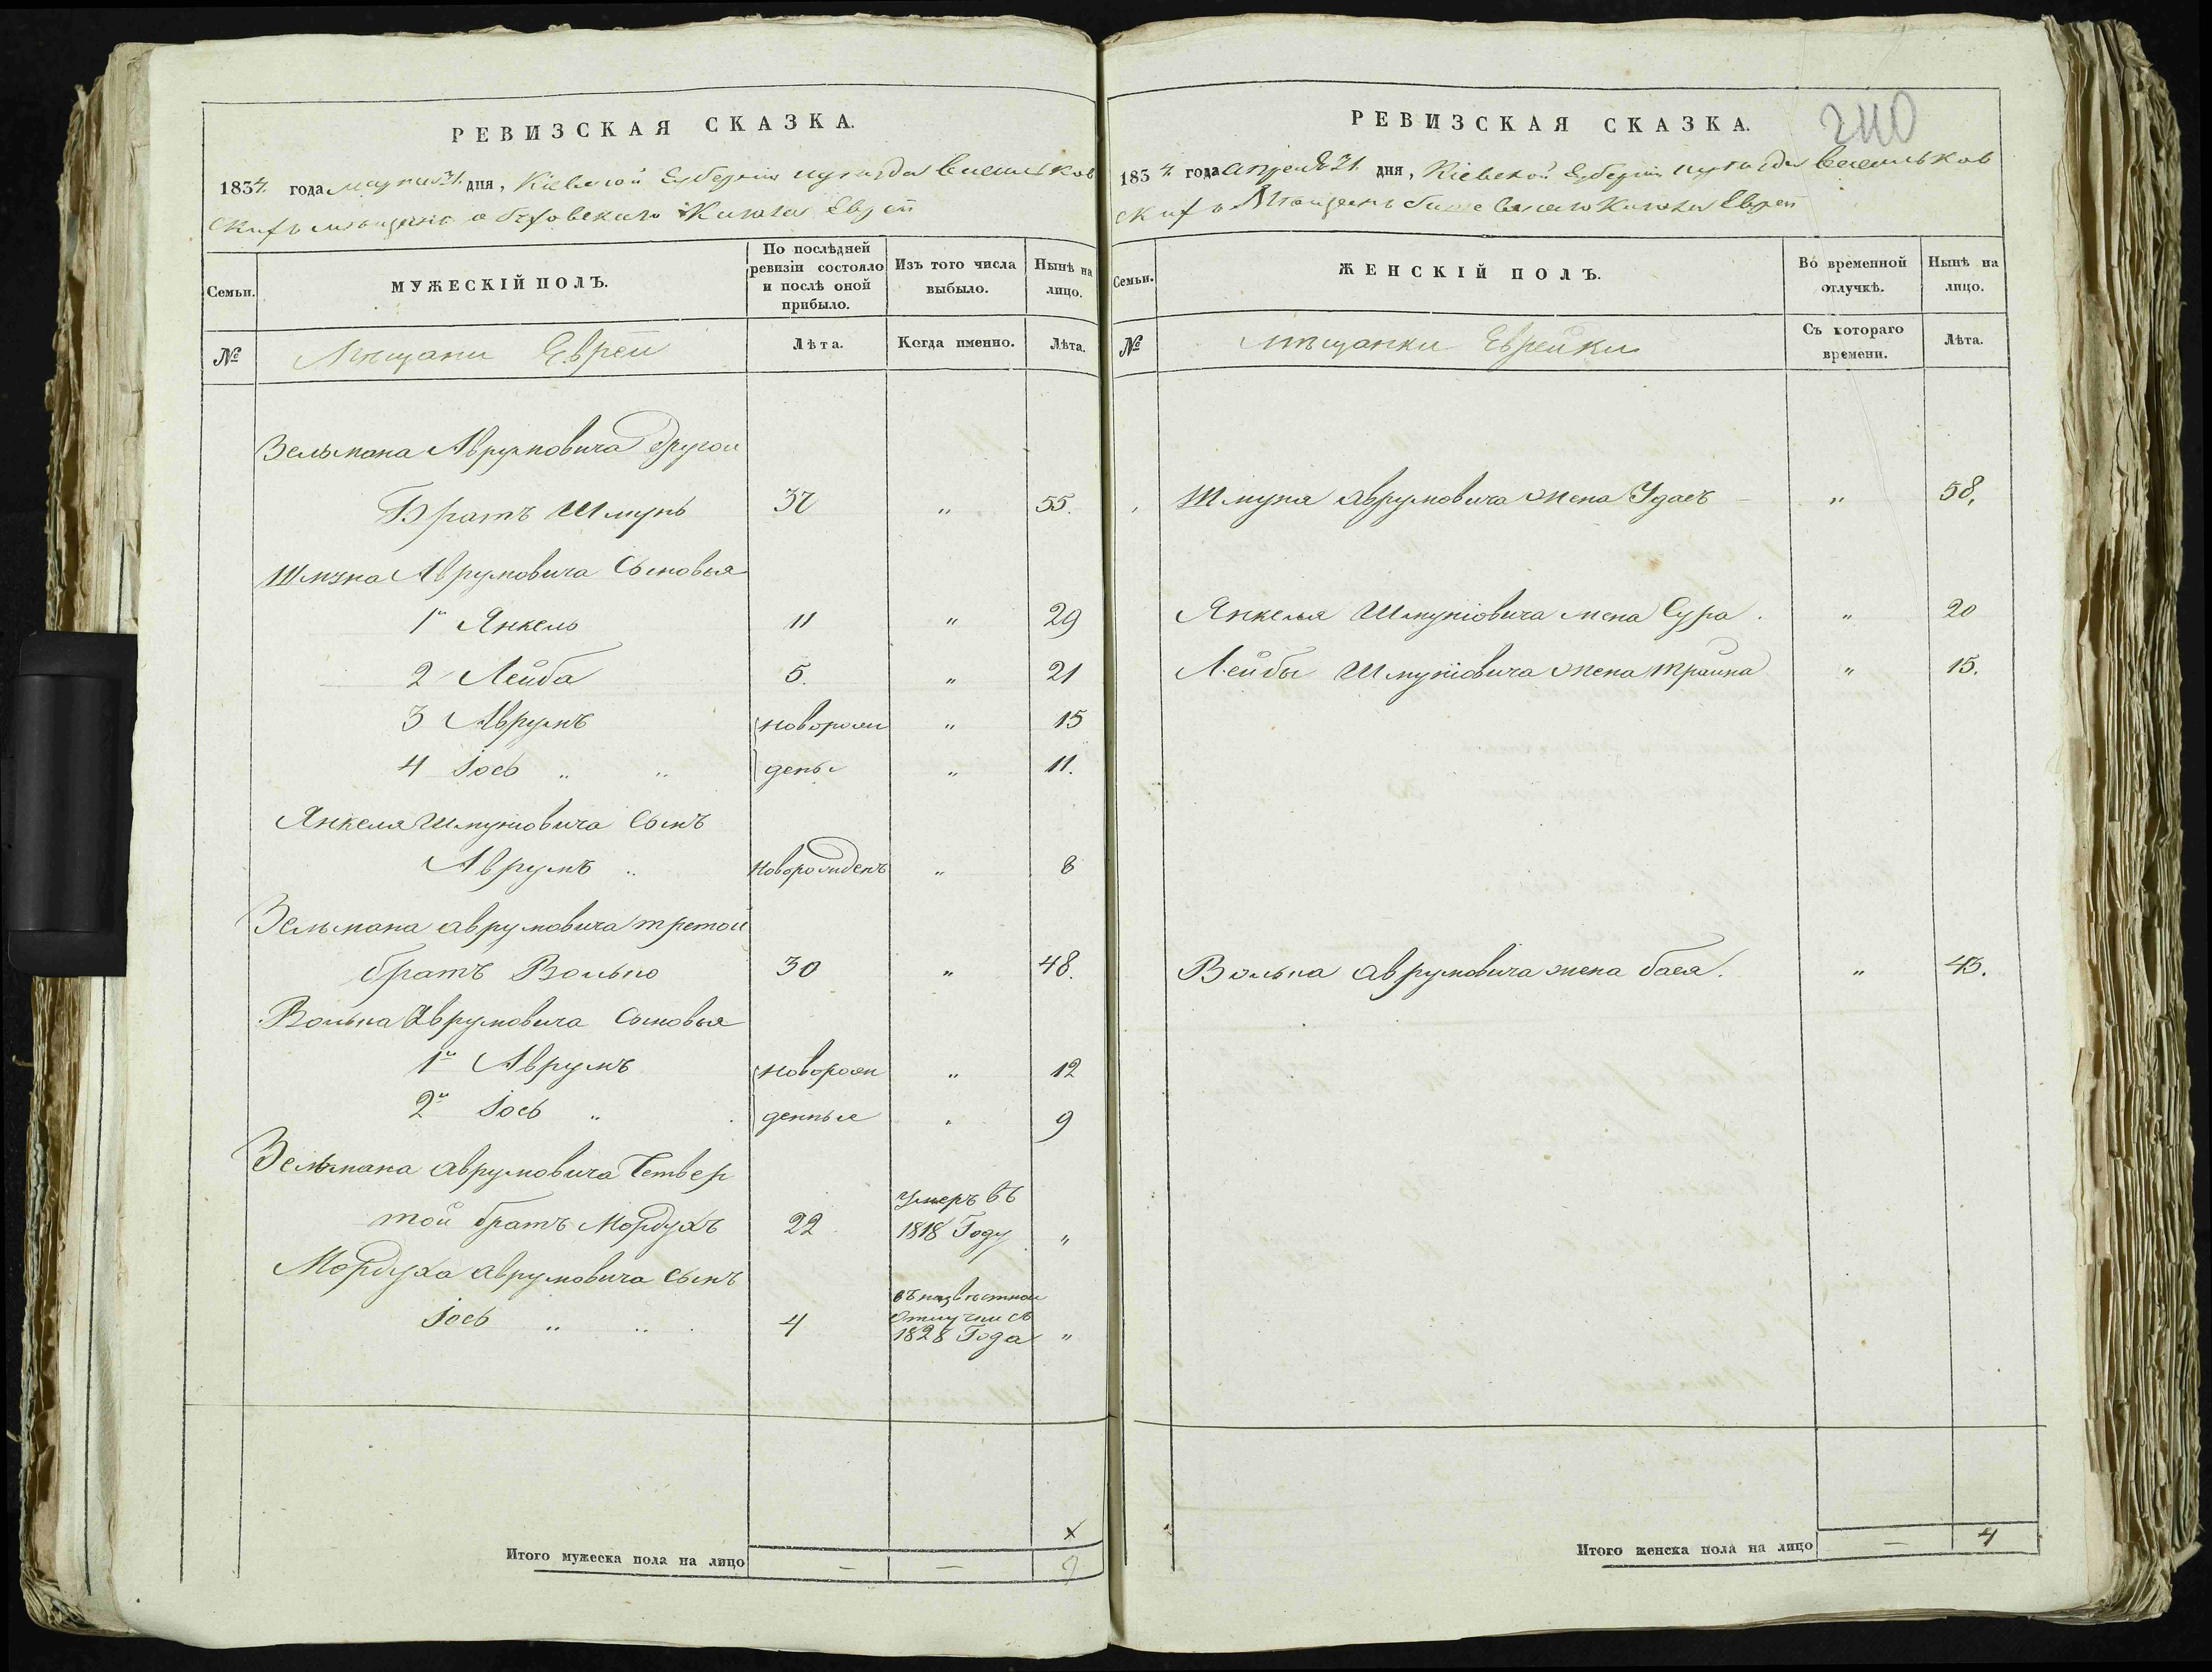 РЕВИЗСКАЯ СКАЗКА.
1834 года дня, Кіевской Губерніи
Евреи
Семьи.
МУЖЕСКІЙ ПОЛЪ.
По послѣдней ревизіи состояло и послѣ оной прибыло.
Изъ того числа выбыло.
Нынѣ на лицо.
№
Мѣщани Евреи
Лѣта.
Когда именно.
Лѣта.
Зельмана Аврумовича другой
Братъ Шмунь 37 " 55.
Шмуна Аврумовича Сыновья
1й Янкель 11 " 29
2 Лейба 5. " 21
3 Аврумъ новорож " 15
4 Іось " " деные " 11.
Янкеля Шмуніовича Сынъ
Аврумъ " Новорожденъ " 8
Зельмана аврумовича третой
братъ Волько 30 " 48.
Волька Аврумовича Сыновья
1й Аврумъ новорож " 12
2й Іось " денные " 9
Зельмана аврумовича Четвер
той братъ Мордухъ 22 Умеръ въ 1818 Году "
Мордуха аврумовича сынъ
Іось " " 4 отлучки съ 1828 Года "
х
Итого мужеска пола на лицо — — 9
РЕВИЗСКАЯ СКАЗКА.
240
1834 года дня, Кіевской Губерніи
Евреи
Семьи.
ЖЕНСКІЙ ПОЛЪ.
Во временной отлучкѣ.
Нынѣ на лицо.
№
мѣщанки Еврейки
Съ котораго времени.
Лѣта.
Шмуня аврумовича жена " 58.
Янкеля Шмуніовича жена Сура. " 20
Лейбы Шмуніовича жена трайна " 15.
Волька аврумовича жена бася. " 43.
Итого женска пола на лицо — 4